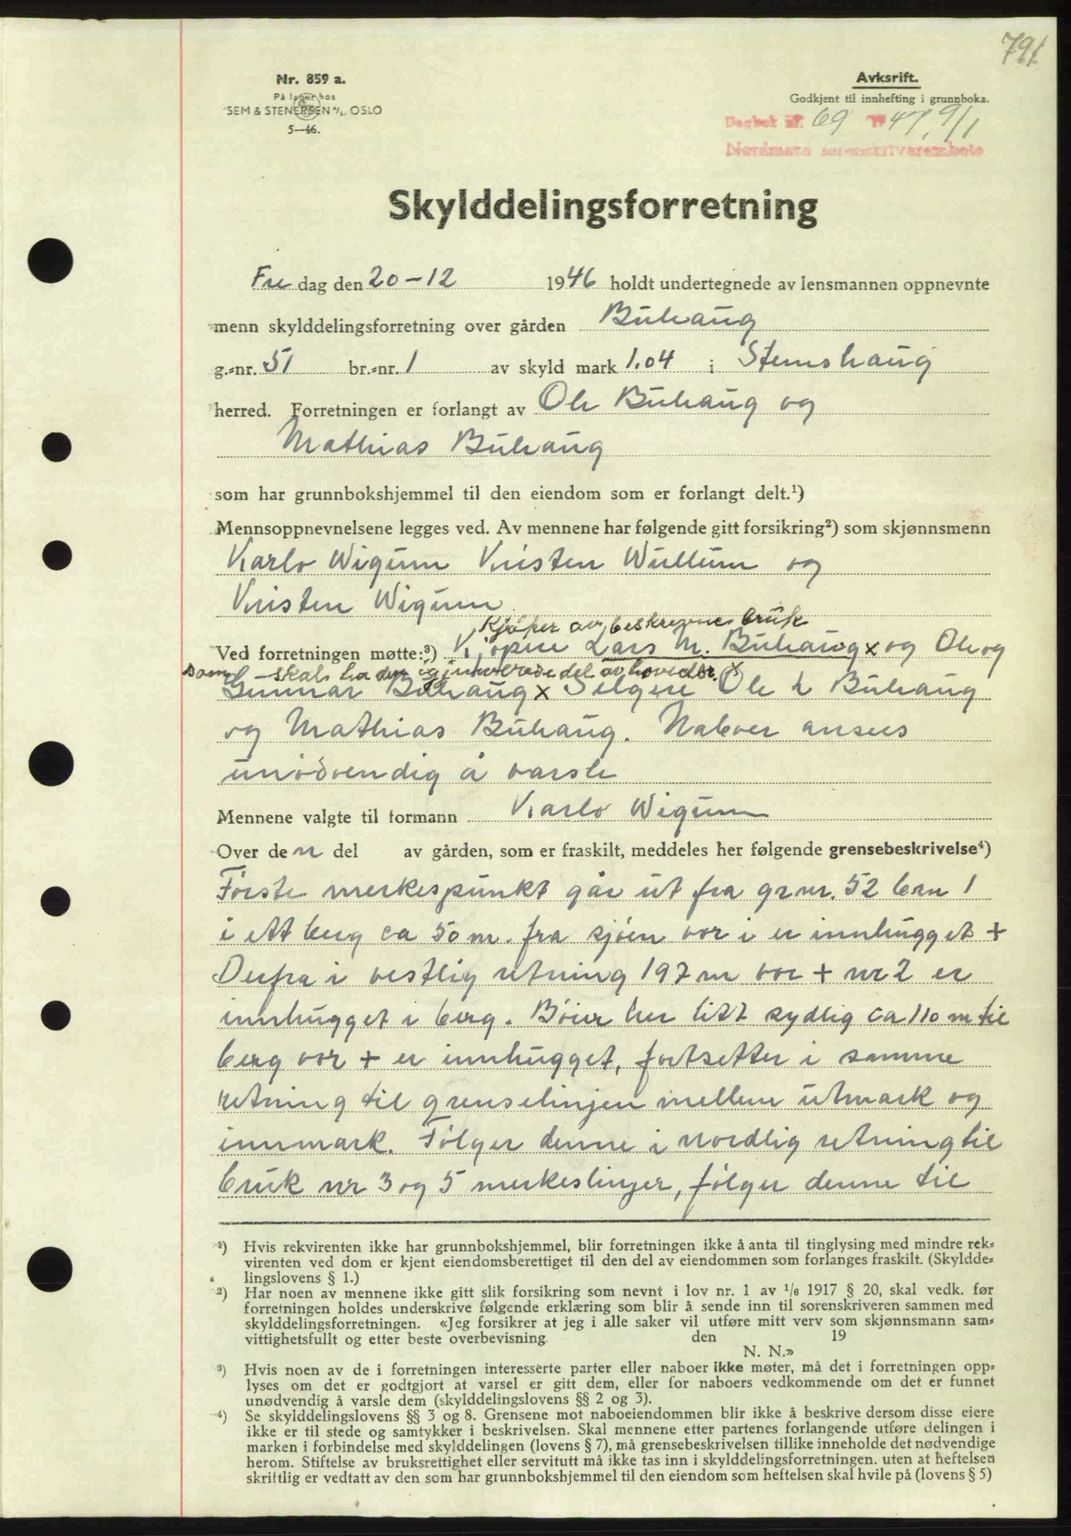 791
Nr. 859 a.
På lager hos
SEM & STENERSEN A/S, OSLO
5—46.
Avksrift.
Godkjent til innhefting i grunnboka.
Dagbok nr. 69 1947, 9/1
Nordmøre sorenskriverembete
Skylddelingsforretning
Fre dag den 20-12 1946 holdt undertegnede av lensmannen oppnevnte
menn skylddelingsforretning over gården Buhaug
g.-nr. 51 br.-nr. 1 av skyld mark 1.04 i Stemshaug
herred. Forretningen er forlangt av Ole Buhaug og
Mathias Buhaug
som har grunnbokshjemmel til den eiendom som er forlangt delt.¹)
Mennsoppnevnelsene legges ved. Av mennene har følgende gitt forsikring²) som skjønnsmenn
Karlo Wigum Kristen Wullum og
Kristen Wigum
Kjøper av beskrevne bruk
Ved forretningen møtte:³) Kjøpere Lars M. Buhaug x og Ole og
som skal ha den gjenværende del av hovedbr. x
Gunnar Buhaug x Selgere Ole L Buhaug
og Mathias Buhaug. Naboer ansees
unødvendig å varsle
Mennene valgte til formann Karlo Wigum
Over den del av gården, som er fraskilt, meddeles her følgende grensebeskrivelse⁴)
Første merkespunkt går ut fra grnr. 52 brn 1
i ett berg ca 50 m. fra sjøen vor i er innhugget +
Derfra i vestlig retning 197 m vor + nr 2 er
innhugget i berg. Bøier her litt sydlig ca 110 m til
berg vor + er innhugget, fortsetter i samme
retning til grenselinjen mellem utmark og
innmark. Følger denne i nordlig retning til
bruk nr 3 og 5 merkeslinjer, følger denne til
¹) Hvis rekvirenten ikke har grunnbokshjemmel, blir forretningen ikke å anta til tinglysing med mindre rek-
virenten ved dom er kjent eiendomsberettiget til den del av eiendommen som forlanges fraskilt. (Skyldde-
lingslovens § 1.)
²) Har noen av mennene ikke gitt slik forsikring som nevnt i lov nr. 1 av 1/6 1917 § 20, skal vedk. før
forretningen holdes underskrive følgende erklæring som blir å sende inn til sorenskriveren sammen med
skylddelingsforretningen. «Jeg forsikrer at jeg i alle saker vil utføre mitt verv som skjønnsmann sam-
vittighetsfullt og etter beste overbevisning. den 19
N. N.»
³) Hvis noen av de i forretningen interesserte parter eller naboer ikke møter, må det i forretningen opp-
lyses om det er godtgjort at varsel er gitt dem, eller for naboers vedkommende om det er funnet
unødvendig å varsle dem (skylddelingslovens §§ 2 og 3).
⁴) Se skylddelingslovens §§ 3 og 8. Grensene mot naboeiendommen blir ikke å beskrive dersom disse eiere
ikke er til stede og samtykker i beskrivelsen. Skal mennene etter partenes forlangende utføre delingen i
marken i forbindelse med skylddelingen (lovens § 7), må grensebeskrivelsen tillike inneholde det nødvendige
herom. Stiftelse av bruksrettighet eller servitutt må ikke tas inn i skylddelingsforretningen. uten at heftelsen
skriftlig er vedtatt av den som har grunnbokshjemmel til den eiendom som heftelsen skal hvile på (lovens § 5)